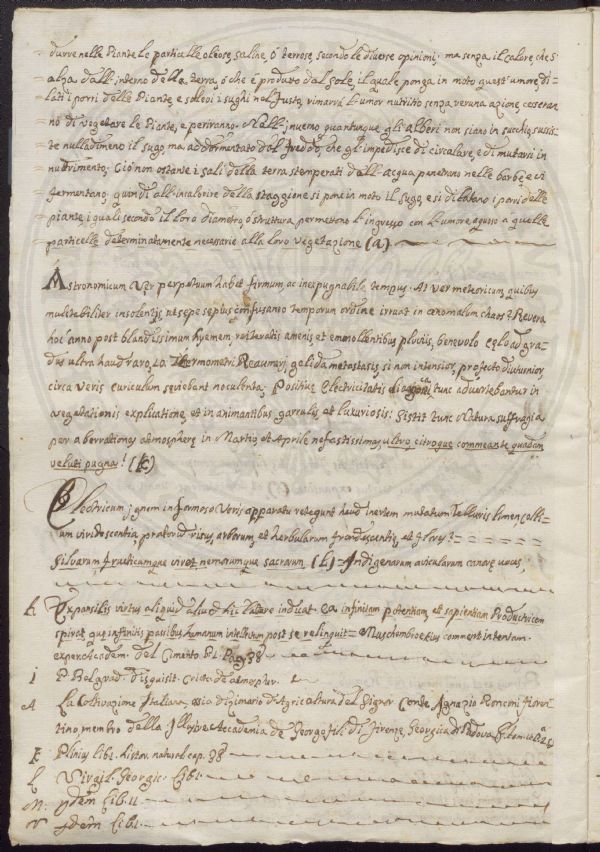 durre nelle Piante le particelle oleose, saline, ó terrose, secondo le diverse opinioni: ma senza il calore che s'
alza dall'interno della terra, ó che é prodotto dal sole, il quale ponga in moto quest'umore, di=
lati i porri delle Piante, e solevi i sughi nel fusto, rimarrá l'umor nutritio senza veruna azione, cesseran
no di vegetare le Piante, e periranno. Nell'inverno quantunque gli alberi non siano in succhio, sussis=
te nulladimeno il sugo, ma addormentato dal freddo, che gli impedisce di circolare, e di mutarsi in
nudrimento. Ció non ostante i sali della terra stemperati dall'acqua penetrano nelle barbe, e vi
fermentano, quindi all'intalorire della staggione si pone in moto il sugo, e si dilatano i pori delle
piante, i quali secondo il loro diametro, ó struttura permettono l'ingresso con l'umore aqueo a quelle
particelle determinatamente necessarie alla loro vegetazione (a)
Astronomicum Ver perpetuum habet firmum, ac inexpugnabile tempus. At ver meteoricum, quibus
mutabiliter insolentijs, ne sepe sepius confusaneo temporum ordine irruat in chaos? Revera
hoc anno post blandissimum hyemem, reiteratis amenis, et emmollientibus pluvijs, benevolo gra=
dus ultra haud raro 10. Thermometri Reaumerj, gelida metastasis, si non intensior, profecto diuturnior,
circa Veris curiculum seviebant noculenta. Positivę Electricitatis tunc advertebantur in
vegetationis explicatione, et in animantibus garrulis, et luxuriosis: Sistit tunc Natura suffragia
per aberrationes atmospherę in Martij, et Aprile nefastissimas, ultro citroque commeante quadam
veluti pugna! (k)
Electricum ignem in formoso Veris apparatu retegunt haud inertem mutatum Telluris limen,
um viridescentia, pratorum risus, arborum, et herbularum frondescentia, et flores?
Silvarum, fruticumque viror, nemorumque sacrorum, (L) Indigenarum avicularum canorę voces,
h. Expansilis virtus aliquid aliud hic latere induat. Ea infinitam potentiam, et sapientiam Productricem
spirat, quę infinitis pasibus humanum intellectum post se relinquit. Muschenbroekius comment. in tentam.
exper. Academ. del Cimento P. I. Pag. 38
i P. Belgrad. disquisit.
A La Coltivazione Italiana, ossia dizionario di Agricoltura del Signor Conte Ignazio Ronconi fioren=
tino, membro della Illustre Accademia de Georgofili di Firenze, Georgica di Padova,
K Plinius lib. histor. natural. cap. 38
L Virgil. Georgic. Lib.
M: ydem Lib. II.
N ydem Lib. I.